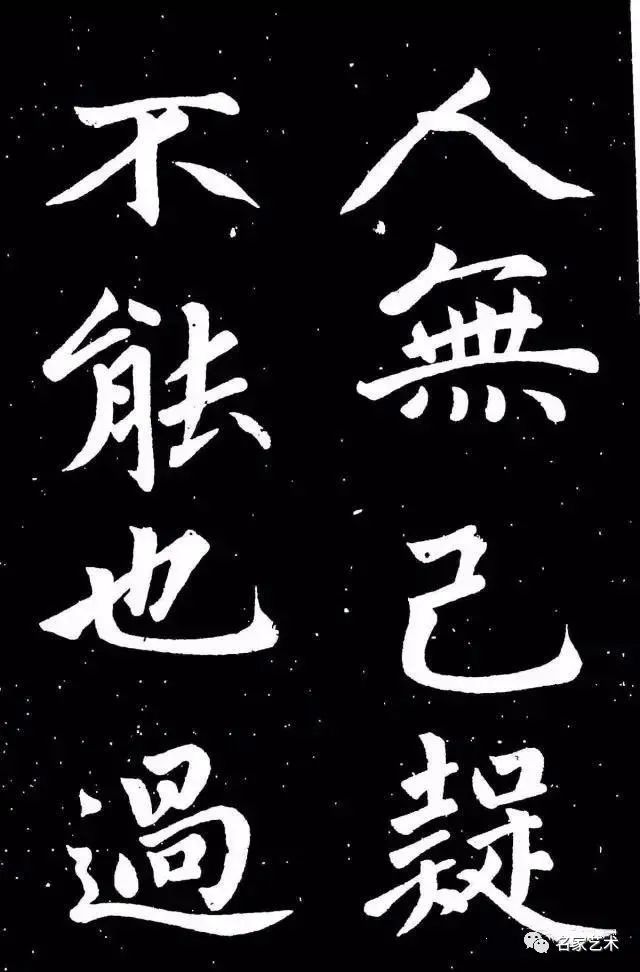 人無己疑
不能也過
名家艺术